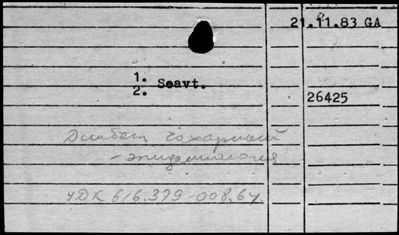 21.11.83 GA
1.
2. Seavt.
26425
Диабет сахарный
- эпидемиология
УДК 616.379-008.64